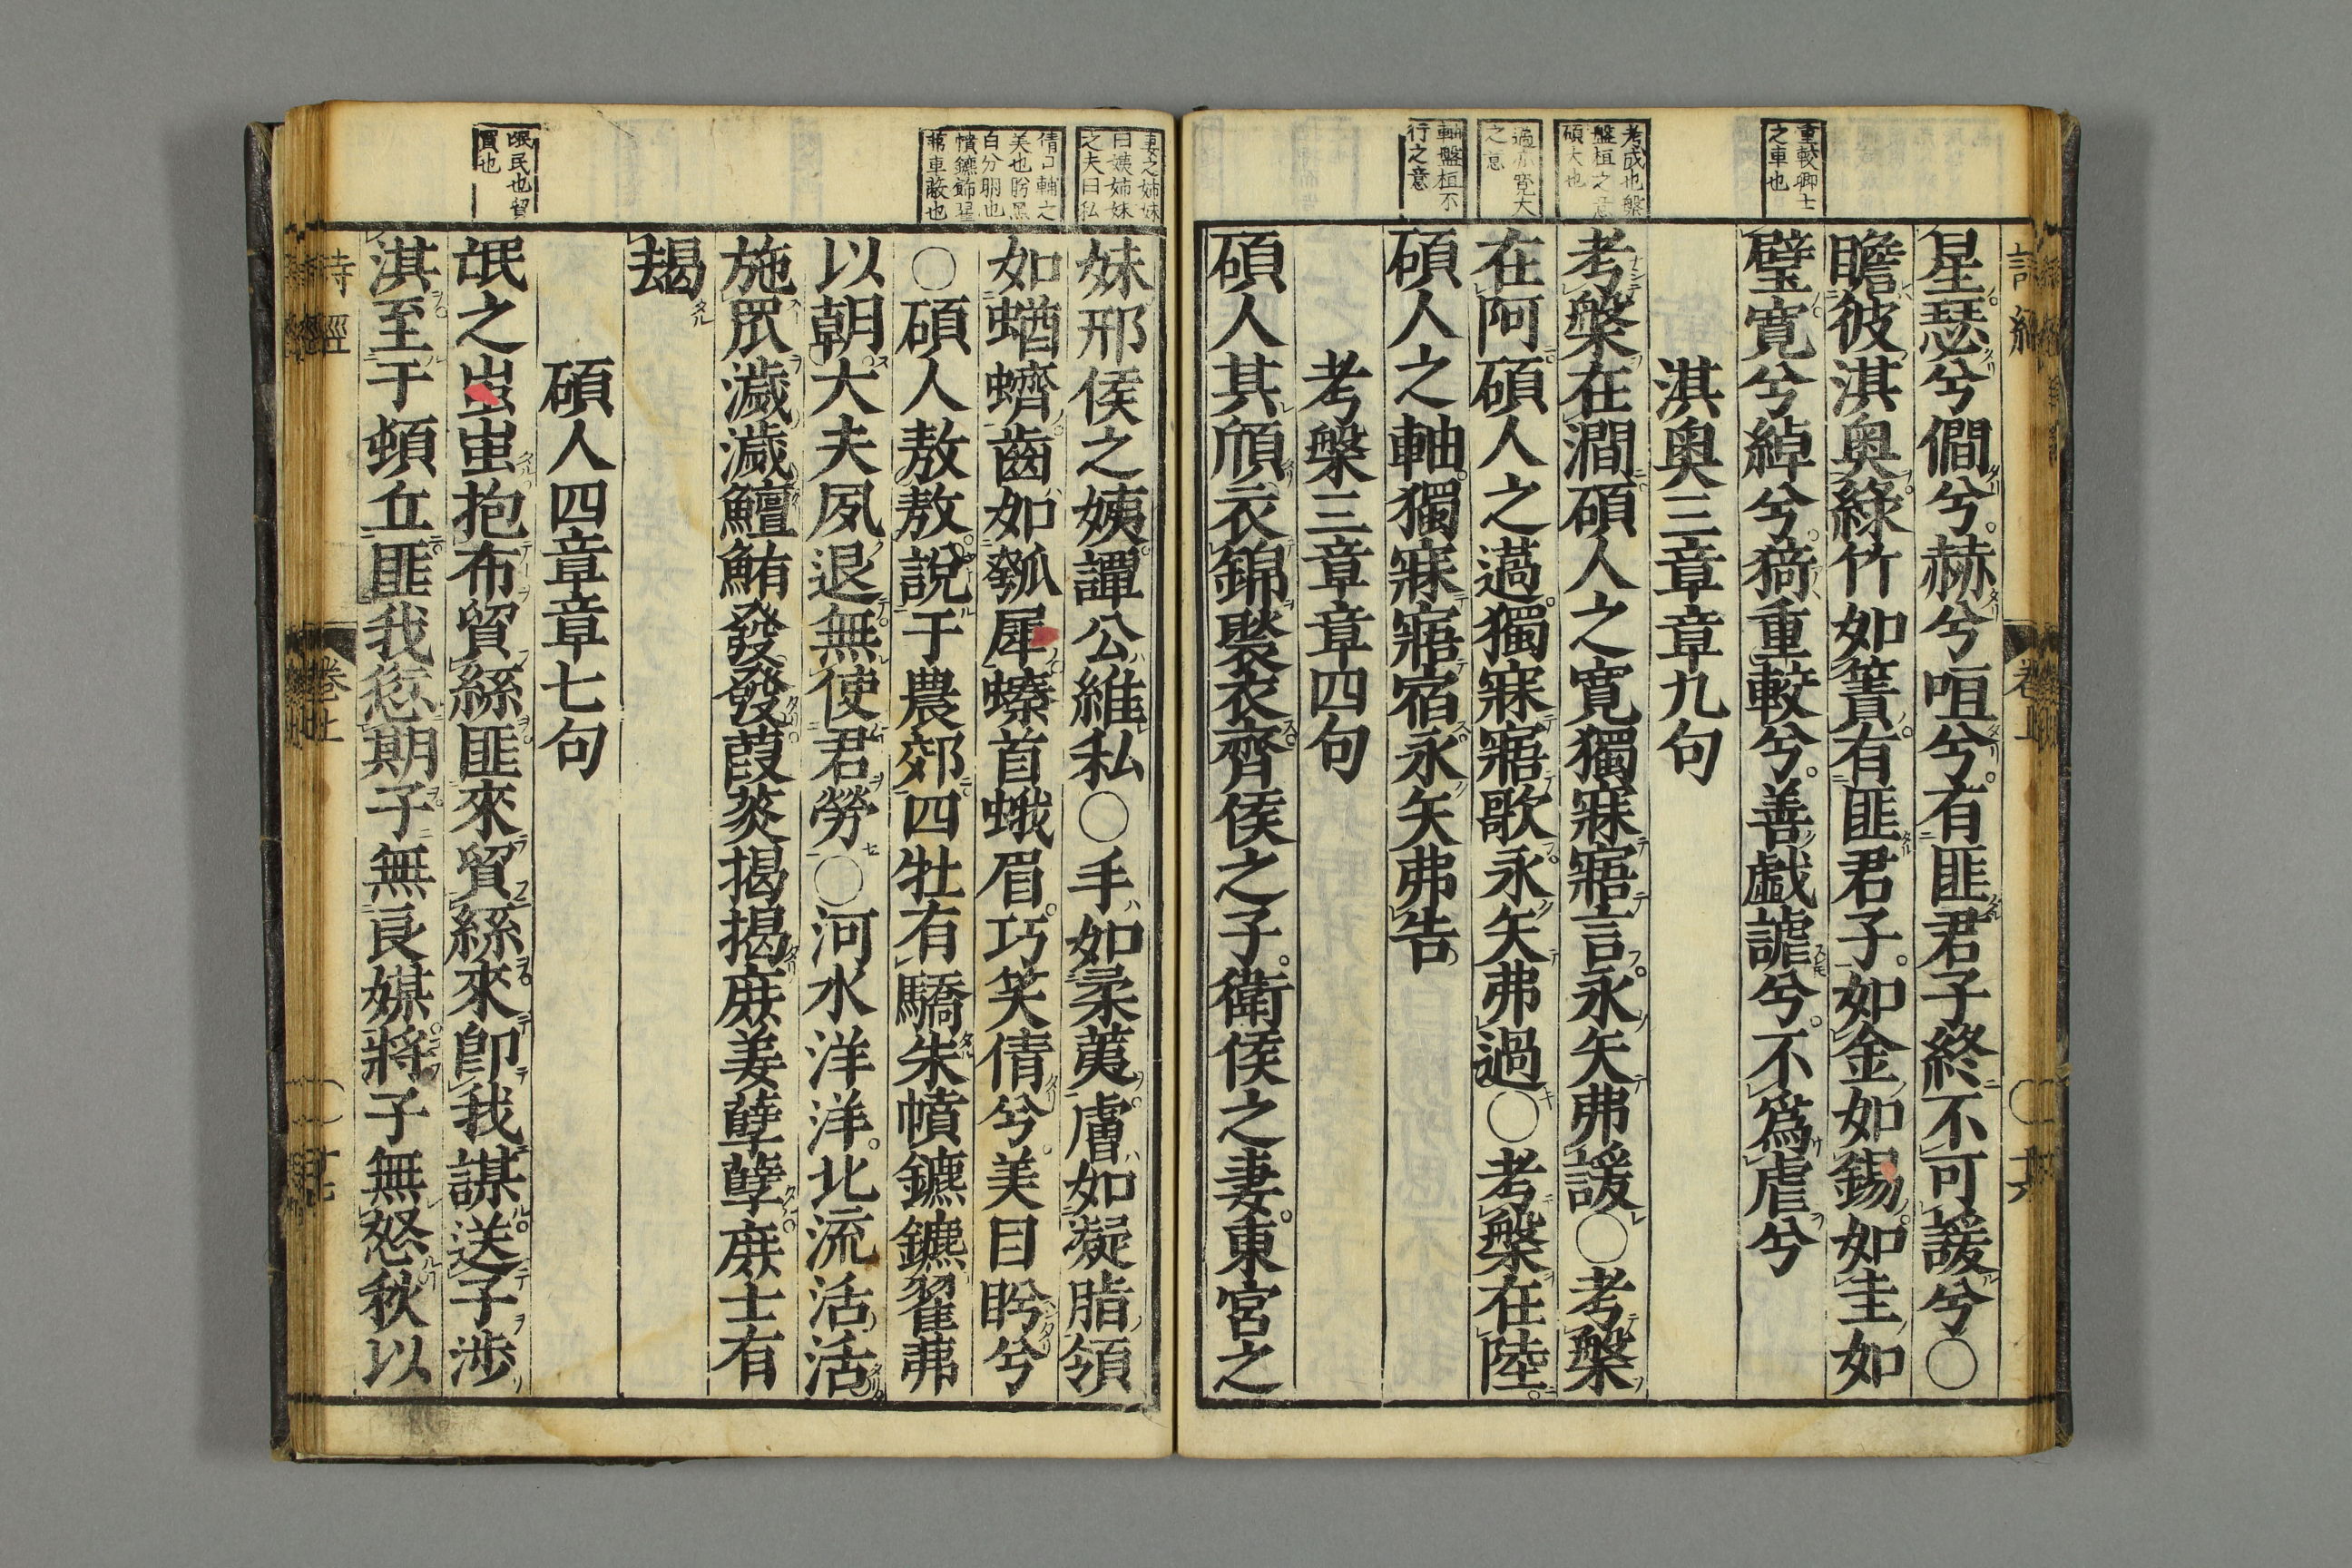 重較卿士
之車也
考成也槃
盤桓之意
碩大也
薖亦寬大
之意
軸盤桓不
行之意
星瑟兮僩兮赫兮咺兮有匪君子終不可諼兮〇
瞻彼淇奧綠竹如簀有匪君子如金如錫如圭如
璧寬兮綽兮猗重較兮善戲謔兮不為虐兮
淇奧三章章九句
考槃在澗碩人之寬獨寐寤言永矢弗諼〇考槃
在阿碩人之薖獨寐寤歌永矢弗過〇考槃在陸
碩人之軸獨寐寤宿永矢弗告
考槃三章章四句
碩人其頎衣錦褧衣齊侯之子衛侯之妻東宮之
妻之姉妹
曰姨姉妹
之夫曰私
倩口輔之
美也盻黑
白分明也
幩鑣飾翟
茀車蔽也
氓民也貿
買也
妹邢侯之姨譚公維私〇手如柔荑膚如凝脂領
如蝤蠐齒如瓠犀螓首蛾眉巧笑倩兮美目盻兮
〇碩人敖敖說于農郊四牡有驕朱幩鑣鑣翟茀
以朝大夫夙退無使君勞〇河水洋洋北流活活
施罛濊濊鱣鮪發發葭菼揭揭庶姜孽孽庶士有
朅
碩人四章章七句
氓之蚩蚩抱布貿絲匪來貿絲來即我謀送子涉
淇至于頓丘匪我愆期子無良媒將子無怒秋以
詩經